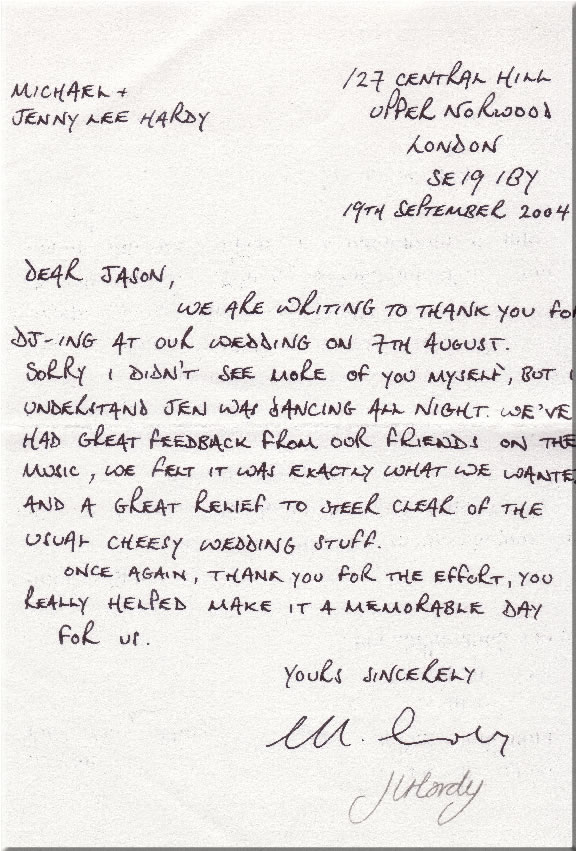 MICHAEL +
JENNY LEE HARDY
127 CENTRAL HILL
UPPER NORWOOD
LONDON
SE19 1BY
19TH SEPTEMBER 2004
DEAR JASON,
WE ARE WRITING TO THANK YOU FOR
DJ-ING AT OUR WEDDING ON 7TH AUGUST.
SORRY I DIDN'T SEE MORE OF YOU MYSELF, BUT I
UNDERSTAND JEN WAS DANCING ALL NIGHT. WE'VE
HAD GREAT FEEDBACK FROM OUR FRIENDS ON THE
MUSIC, WE FELT IT WAS EXACTLY WHAT WE WANTED
AND A GREAT RELIEF TO STEER CLEAR OF THE
USUAL CHEESY WEDDING STUFF.
ONCE AGAIN, THANK YOU FOR THE EFFORT, YOU
REALLY HELPED MAKE IT A MEMORABLE DAY
FOR US.
YOURS SINCERELY
JLHardy